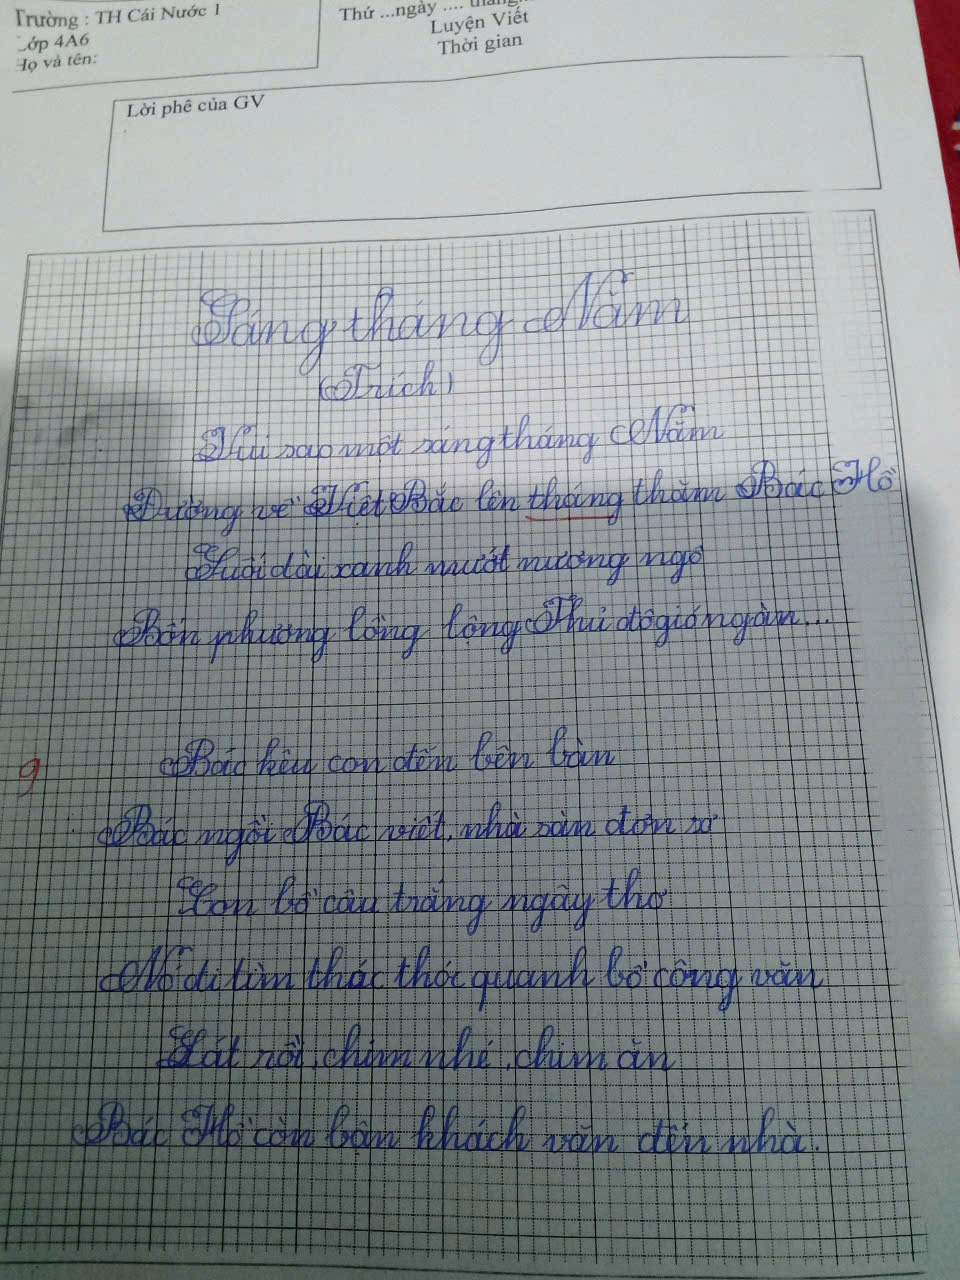 Trường : TH Cái Nước 1
Lớp 4A6
Họ và tên:
Thứ ...ngày .... tháng...
Luyện Viết
Thời gian
Lời phê của GV
Sáng tháng Năm
(Trích)
Vui sao một sáng tháng Năm
Đường về Việt Bắc lên tháng thăm Bác Hồ
Suối dài xanh mướt nương ngô
Bốn phương lồng lộng Thủ đô gió ngàn...
9
Bác kêu con đến bên bàn
Bác ngồi Bác viết, nhà sàn đơn sơ
Con bồ câu trắng ngây thơ
Nó đi tìm thác thóc quanh bồ công văn
Lát rồi, chim nhé, chim ăn
Bác Hồ còn bận khách văn đến nhà.